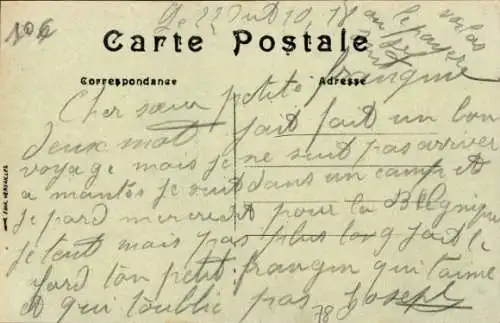 106
Le 22 10, 18
Carte Postale
Correspondance
Adresse
Cher sœur petite frangine
deux mot jait fait un bon
voyage mais je ne suit pas arriver
a mantes je suit dans un camp et
je pard mercredi pour la Belgnique
je tout mais pas plus long jait le
tard ton petit frangin qui t'aime
et qui t'oublie pas Joseph
78